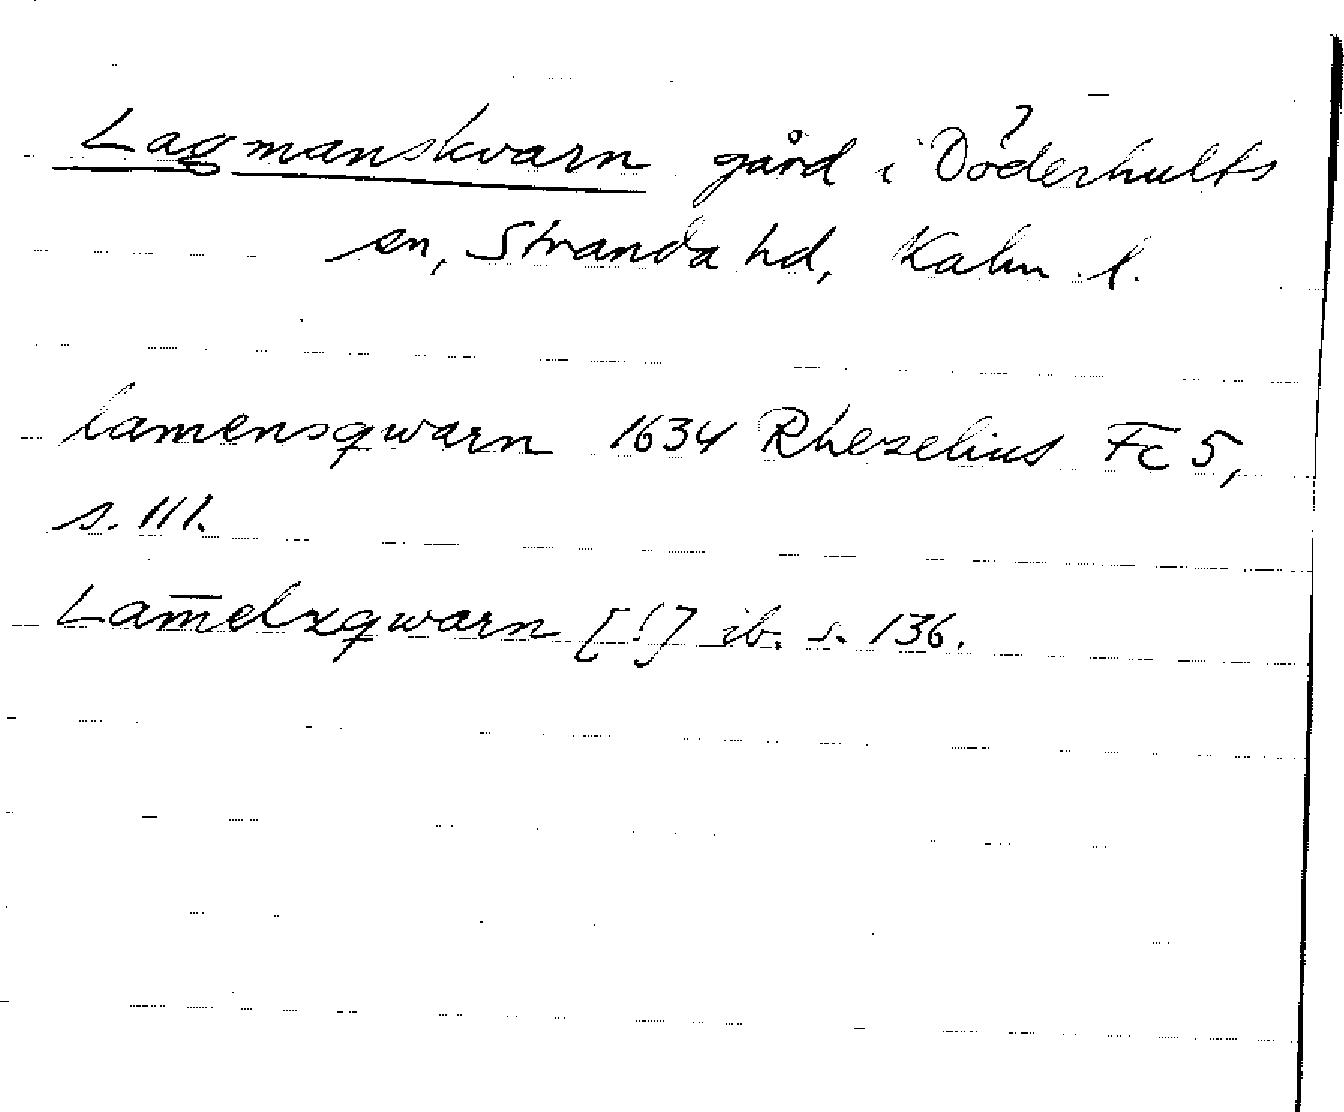 Lagmanskvarn gård i Döderhults
sn, Stranda hd, Kalm. l.
lamensqwarn 1634 Rhezelius Fc 5,
s. 111.
Lam̅elxqwarn [!] ib. s. 136.